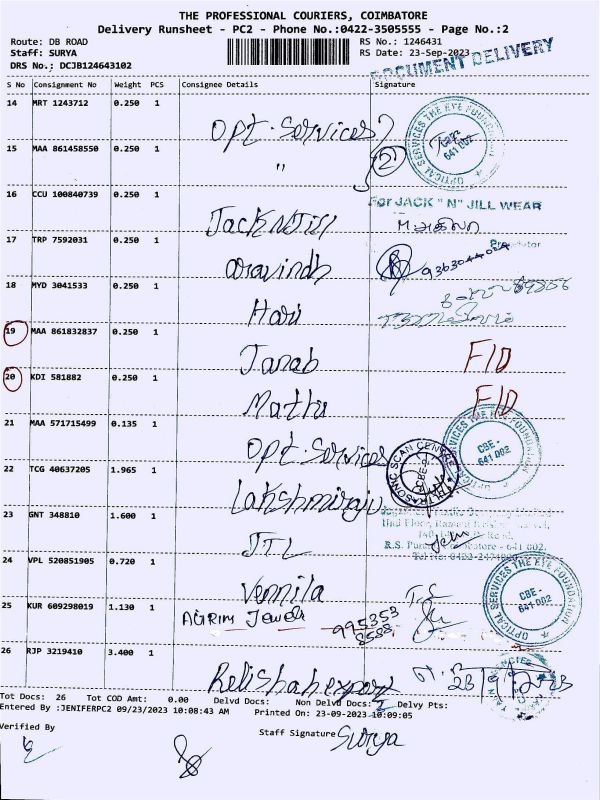 THE PROFESSIONAL COURIERS, COIMBATORE
Delivery Runsheet - PC2 - Phone No.:0422-3505555 - Page No.:2
Route: DB ROAD
RS No.: 1246431
Staff: SURYA
RS Date: 23-Sep-2023
DRS No.: DCJB124643102
DOCUMENT DELIVERY
S No Consignment No Weight PCS Consignee Details Signature
14 MRT 1243712 0.250 1 Opt. Services
OPTICAL SERVICES THE EYE FOUNDATION
641 002
15 MAA 861458550 0.250 1 " 2
16 CCU 100840739 0.250 1 Jack N Jill
For JACK "N" JILL WEAR
அகிலா
17 TRP 7592031 0.250 1 aravindh
18 MYD 3041533 0.250 1 Hari
19 MAA 861832837 0.250 1 Janab F/D
20 KDI 581882 0.250 1 Mathu F/D
21 MAA 571715499 0.135 1 Opt. Services
OPTICAL SERVICES THE EYE FOUNDATION
CBE - 641 002
22 TCG 40637205 1.965 1 Lakshmiraju
ULTRASONIC SCAN CENTRE
23 GNT 348810 1.600 1 JTL
24 VPL 520851905 0.720 1 Vennila
OPTICAL SERVICES THE EYE FOUNDATION
CBE - 641 002
25 KUR 609298019 1.130 1 AGRIM Jewels 995353
26 RJP 3219410 3.400 1 Relishah export
23/9/2023
Tot Docs: 26 Tot COD Amt: 0.00 Delvd Docs: Non Delvd Docs: 2 Delvy Pts:
Entered By :JENIFERPC2 09/23/2023 10:08:43 AM Printed On: 23-09-2023 10:09:05
Verified By
Staff Signature Surya